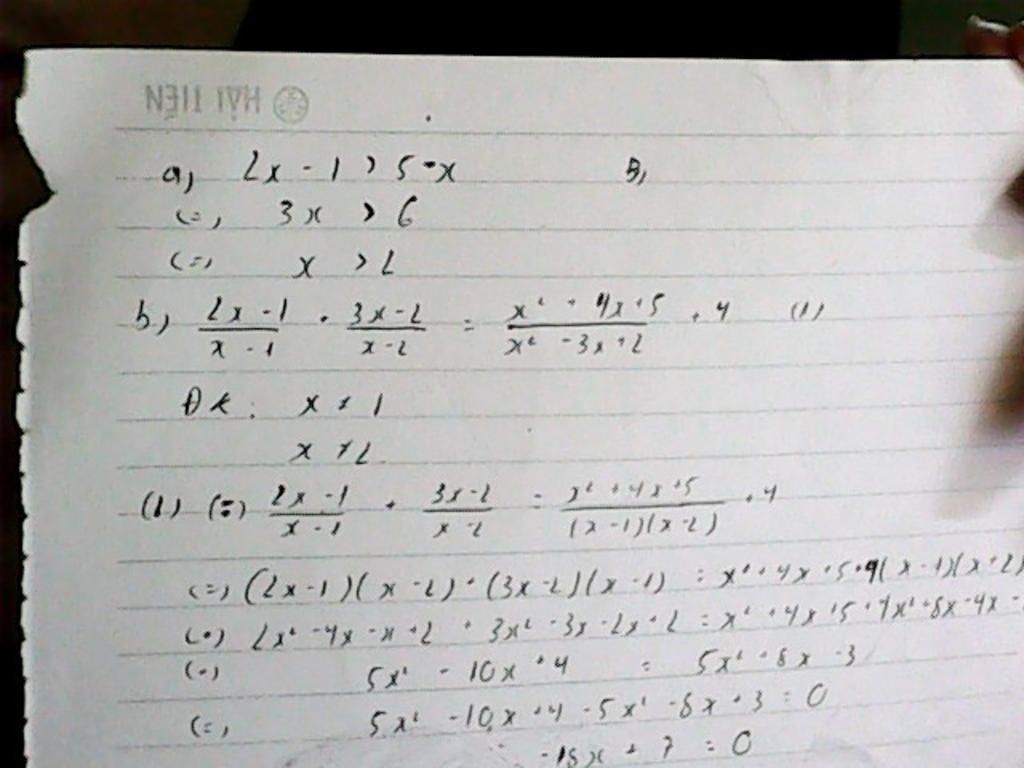 HẢI TIẾN
a, 2x - 1 > 5 - x B,
<=> 3x > 6
<=> x > 2
b) (2x - 1)/(x - 1) + (3x - 2)/(x - 2) = (x² + 4x + 5)/(x² - 3x + 2) + 4 (1)
ĐK: x ≠ 1
x ≠ 2
(1) <=> (2x - 1)/(x - 1) + (3x - 2)/(x - 2) = (x² + 4x + 5)/((x - 1)(x - 2)) + 4
<=> (2x - 1)(x - 2) + (3x - 2)(x - 1) = x² + 4x + 5 + 4(x - 1)(x + 2)
<=> 2x² - 4x - x + 2 + 3x² - 3x - 2x + 2 = x² + 4x + 5 + 4x² + 8x - 4x -
<=> 5x² - 10x + 4 = 5x² + 8x - 3
<=> 5x² - 10x + 4 - 5x² - 8x + 3 = 0
-18x + 7 = 0